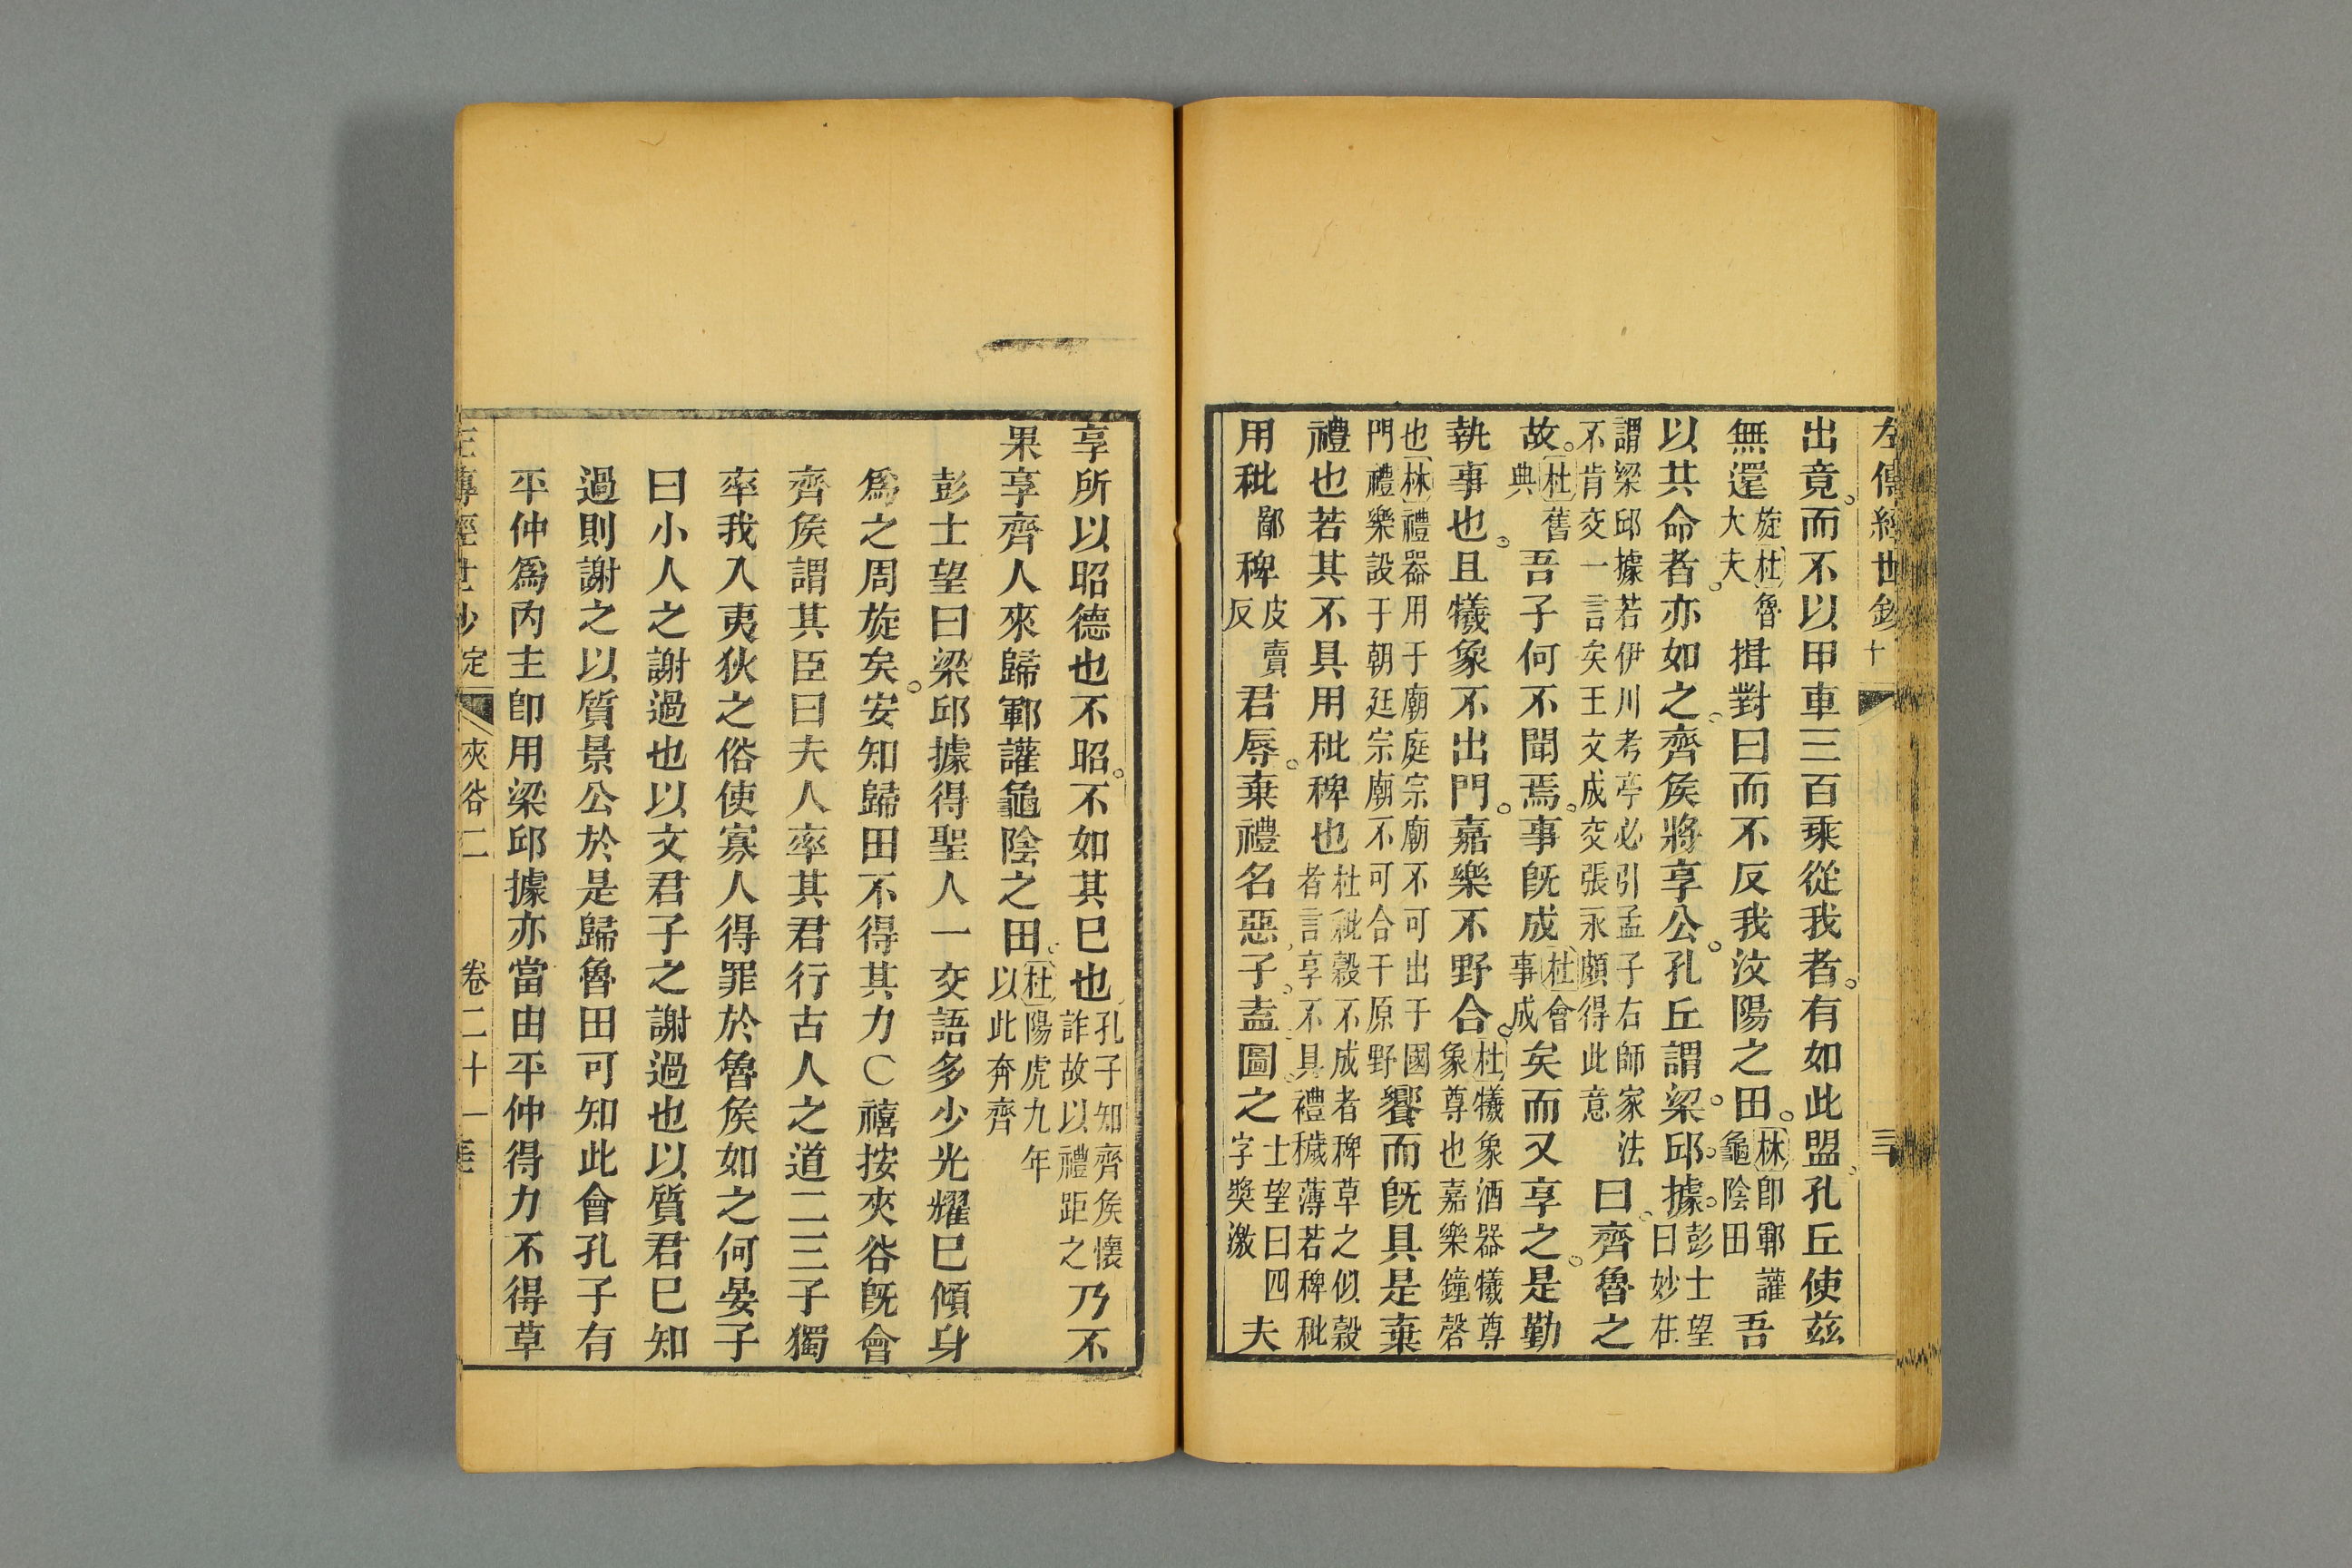 左傳經世鈔 十 三
出竟而不以甲車三百乘從我者有如此盟孔丘使茲
無還旋杜魯大夫揖對曰而不反我汶陽之田林即鄆讙龜陰田吾
以其命者亦如之齊矦將享公孔丘謂梁邱據彭士望曰妙在
謂梁邱據若伊川考亭必引孟子右師家法不肯交一言矣王文成交張永頗得此意曰齊魯之
故杜舊典吾子何不聞焉事旣成杜會事成矣而又享之是勤
執事也且犧象不出門嘉樂不野合杜犧象酒器犧尊象尊也嘉樂鐘磬
也林禮器用于廟庭宗廟不可出于國門禮樂設于朝廷宗廟不可合于原野饗而旣具是棄
禮也若其不具用秕稗也杜秕穀不成者稗草之似穀者言享不具禮穢薄若稗秕
用秕鄙稗皮賣反君辱棄禮名惡子盍圖之士望曰四字奬激夫
享所以昭德也不昭不如其巳也孔子知齊矦懷詐故以禮距之乃不
果享齊人來歸鄆讙龜陰之田杜陽虎九年以此奔齊
彭士望曰梁邱據得聖人一交語多少光耀巳傾身
爲之周旋矣安知歸田不得其力〇禧按夾谷旣會
齊矦謂其臣曰夫人率其君行古人之道二三子獨
率我入夷狄之俗使寡人得罪於魯矦如之何晏子
曰小人之謝過也以文君子之謝過也以質君巳知
過則謝之以質景公於是歸魯田可知此會孔子有
平仲爲內主卽用梁邱據亦當由平仲得力不得草
左傳經世鈔 定 夾谷二 卷二十一